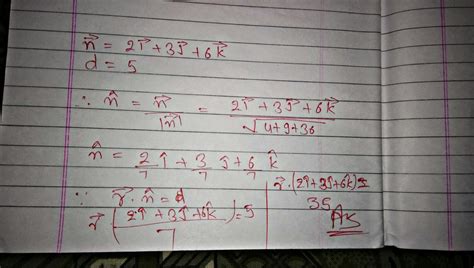 n⃗ = 2i⃗ + 3j⃗ + 6k⃗
d = 5
∴ n̂ = n⃗ / |n⃗| = (2i⃗ + 3j⃗ + 6k⃗) / √(4+9+36)
n̂ = 2/7 î + 3/7 ĵ + 6/7 k̂
∵ r⃗ . n̂ = d
r⃗ (2î + 3ĵ + 6k̂ / 7) = 5
r⃗ . (2î + 3ĵ + 6k̂) =
35 Ans